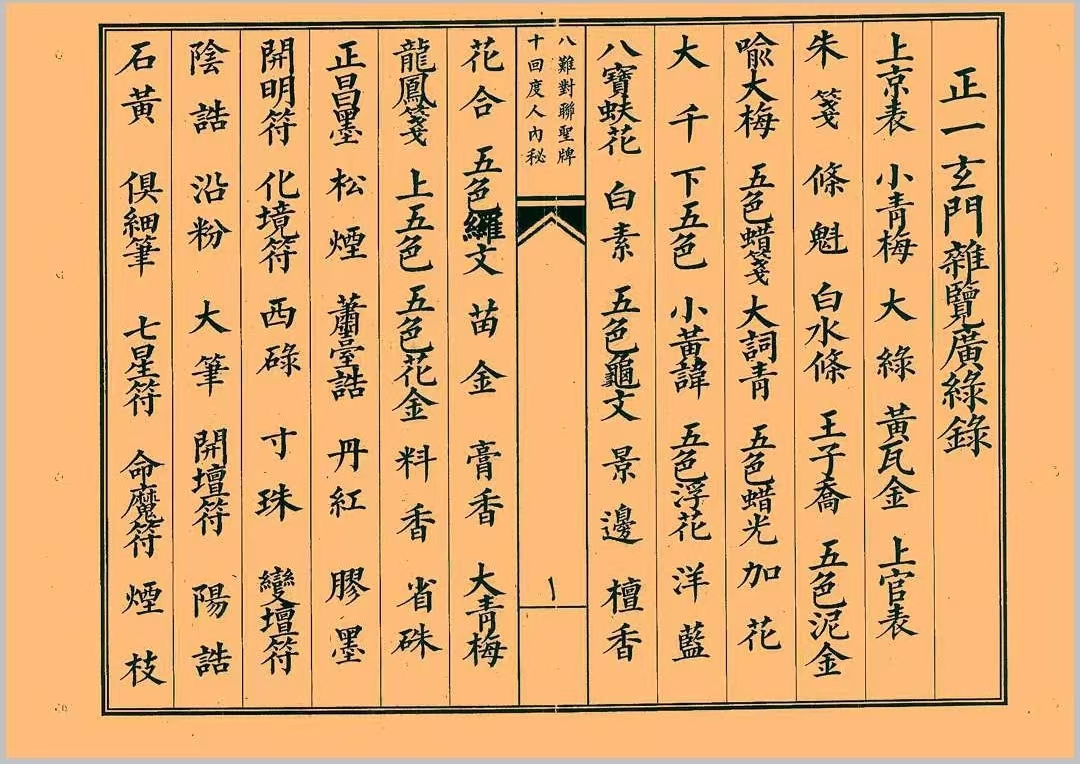 正一玄門雜覽廣綠錄
上京表 小青梅 大綠 黃瓦金 上官表
朱箋 條魁 白水條 王子喬 五色泥金
喩大梅 五色蜡箋 大詞青 五色蜡光 加花
大千 下五色 小黃諱 五色浮花 洋藍
八寶蚨花 白素 五色龜文 景邊 檀香
八難對聯聖牌
十回度人內秘
花合 五色羅文 苗金 膏香 大青梅
龍鳳箋 上五色 五色花金 料香 省硃
正昌墨 松煙 蕭臺誥 丹紅 膠墨
開明符 化境符 西碌 寸珠 變壇符
陰誥 沿粉 大筆 開壇符 陽誥
石黃 俱細筆 七星符 命魔符 煙枝